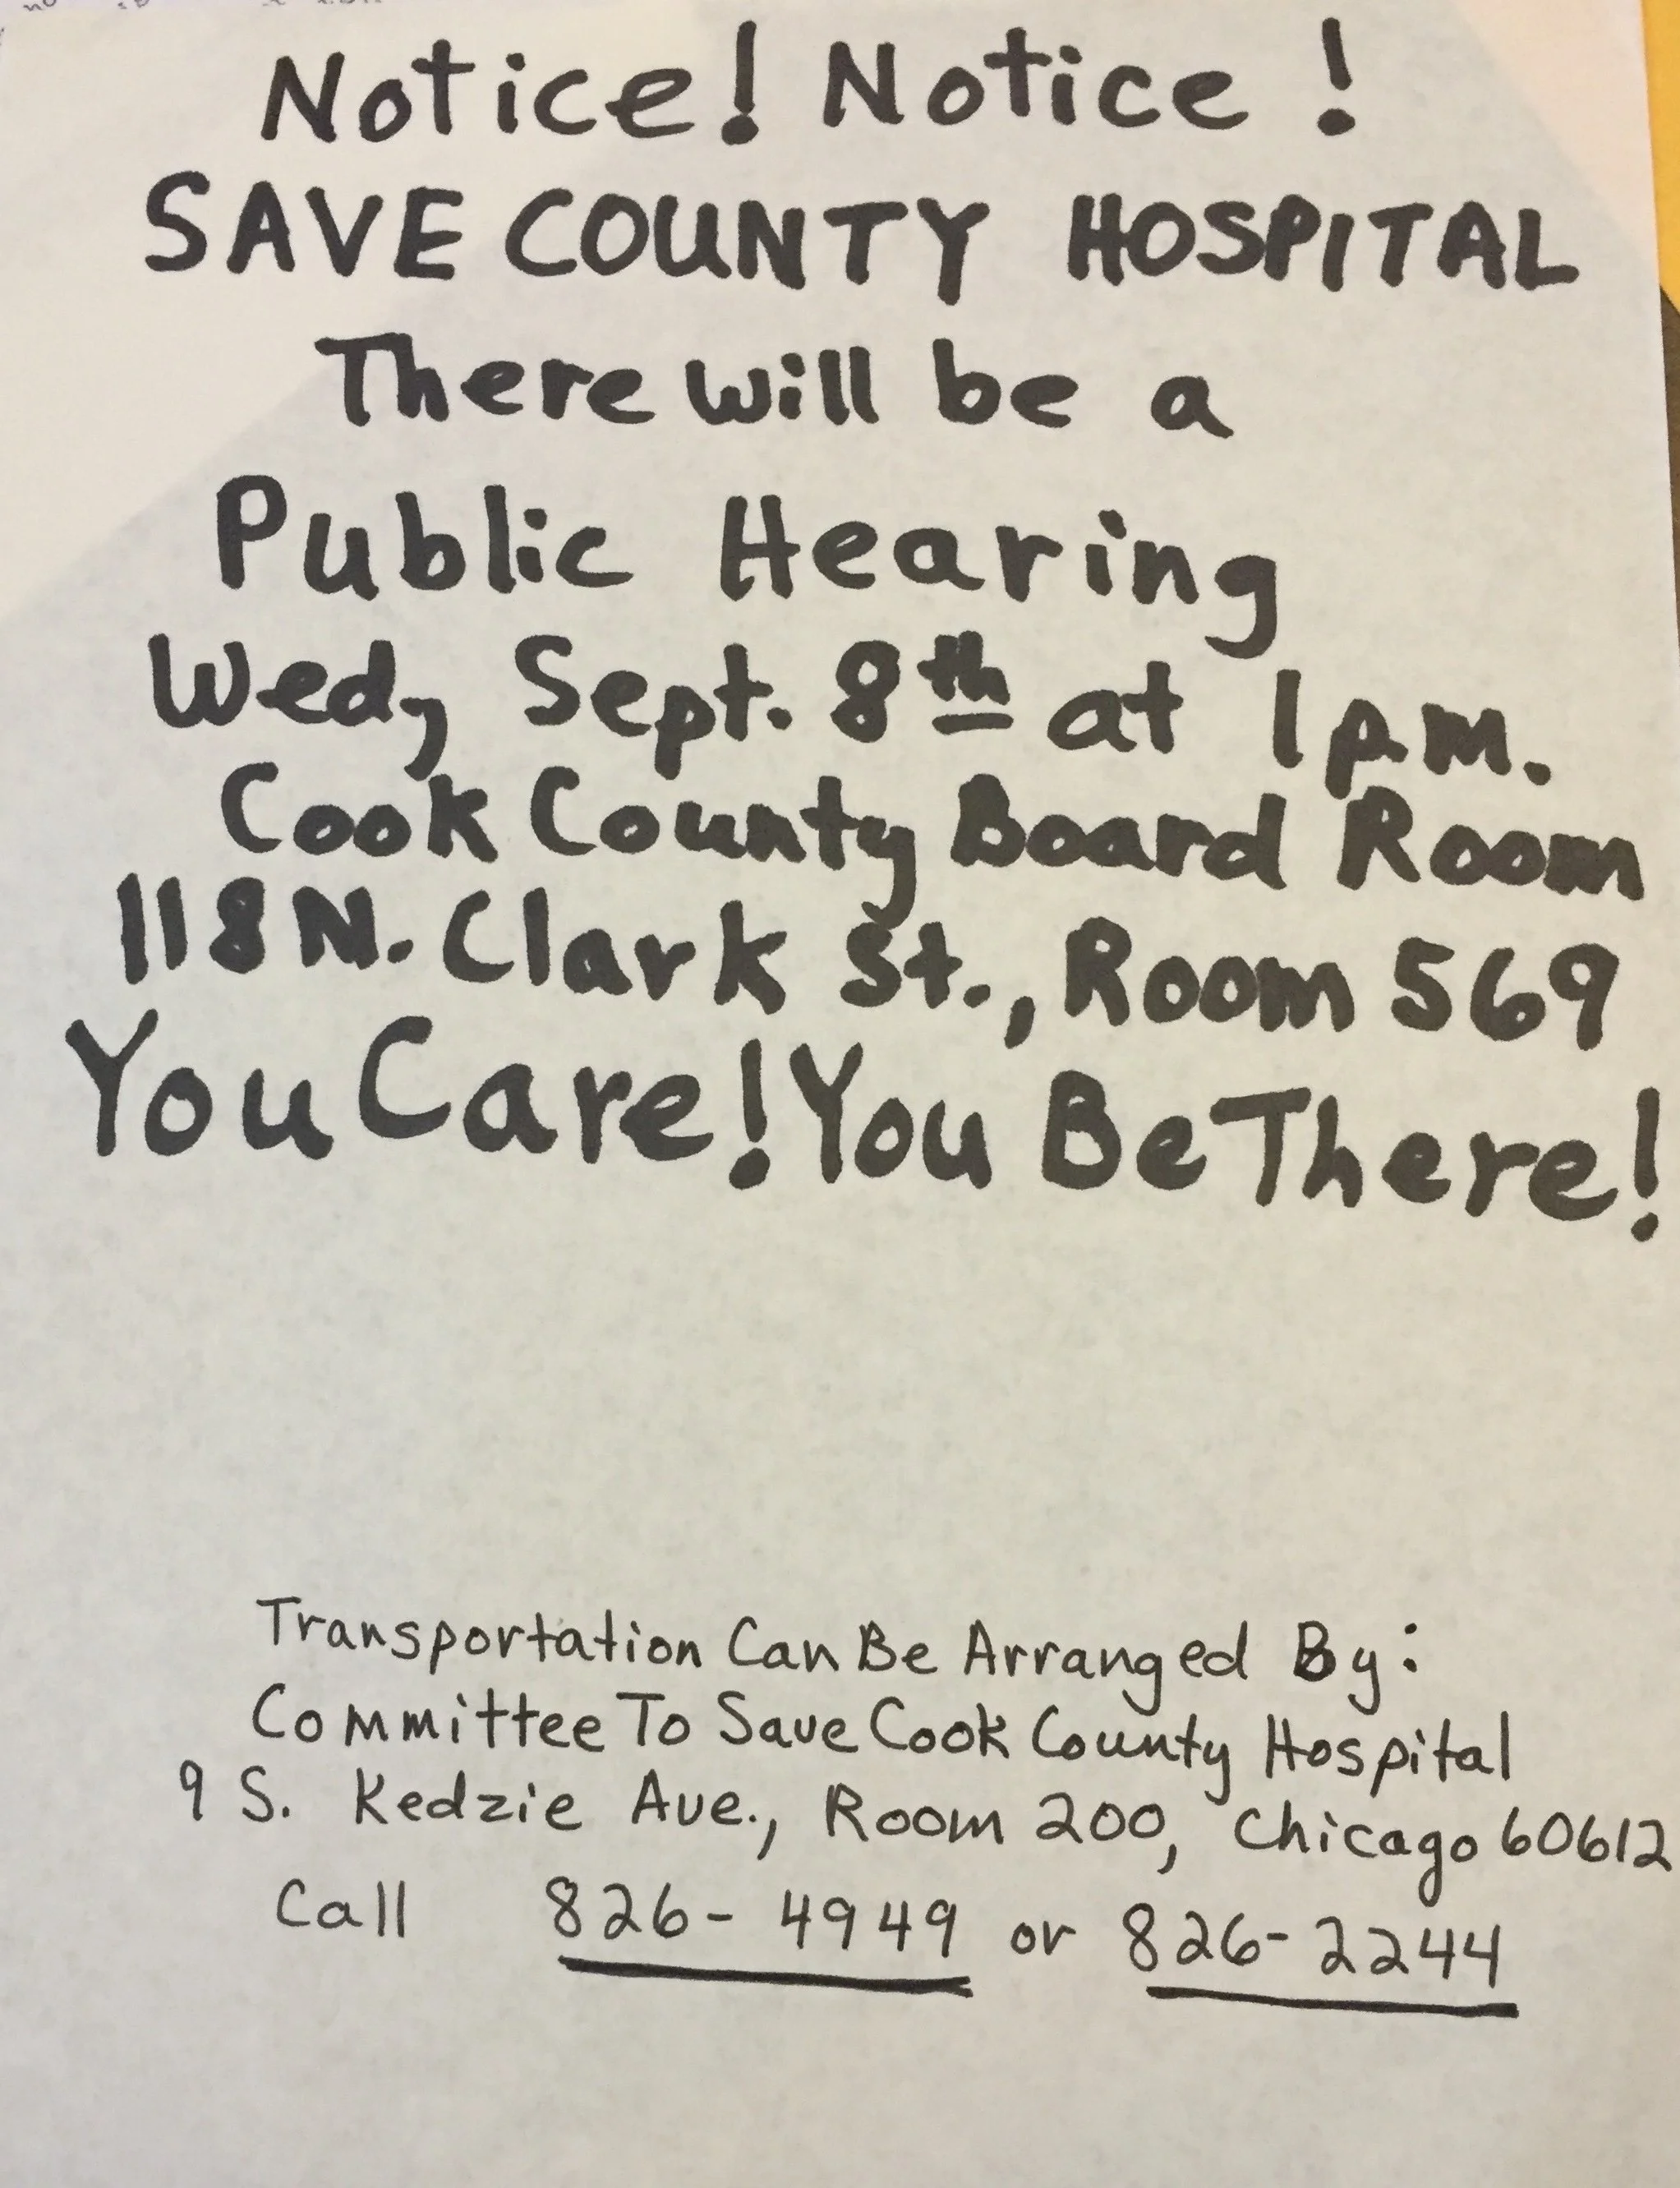 Notice! Notice!
SAVE COUNTY HOSPITAL
There will be a
Public Hearing
Wed, Sept. 8th at 1p.m.
Cook County Board Room
118 N. Clark St., Room 569
You Care! You Be There!
Transportation Can Be Arranged By:
Committee To Save Cook County Hospital
9 S. Kedzie Ave., Room 200, Chicago 60612
Call 826-4949 or 826-2244